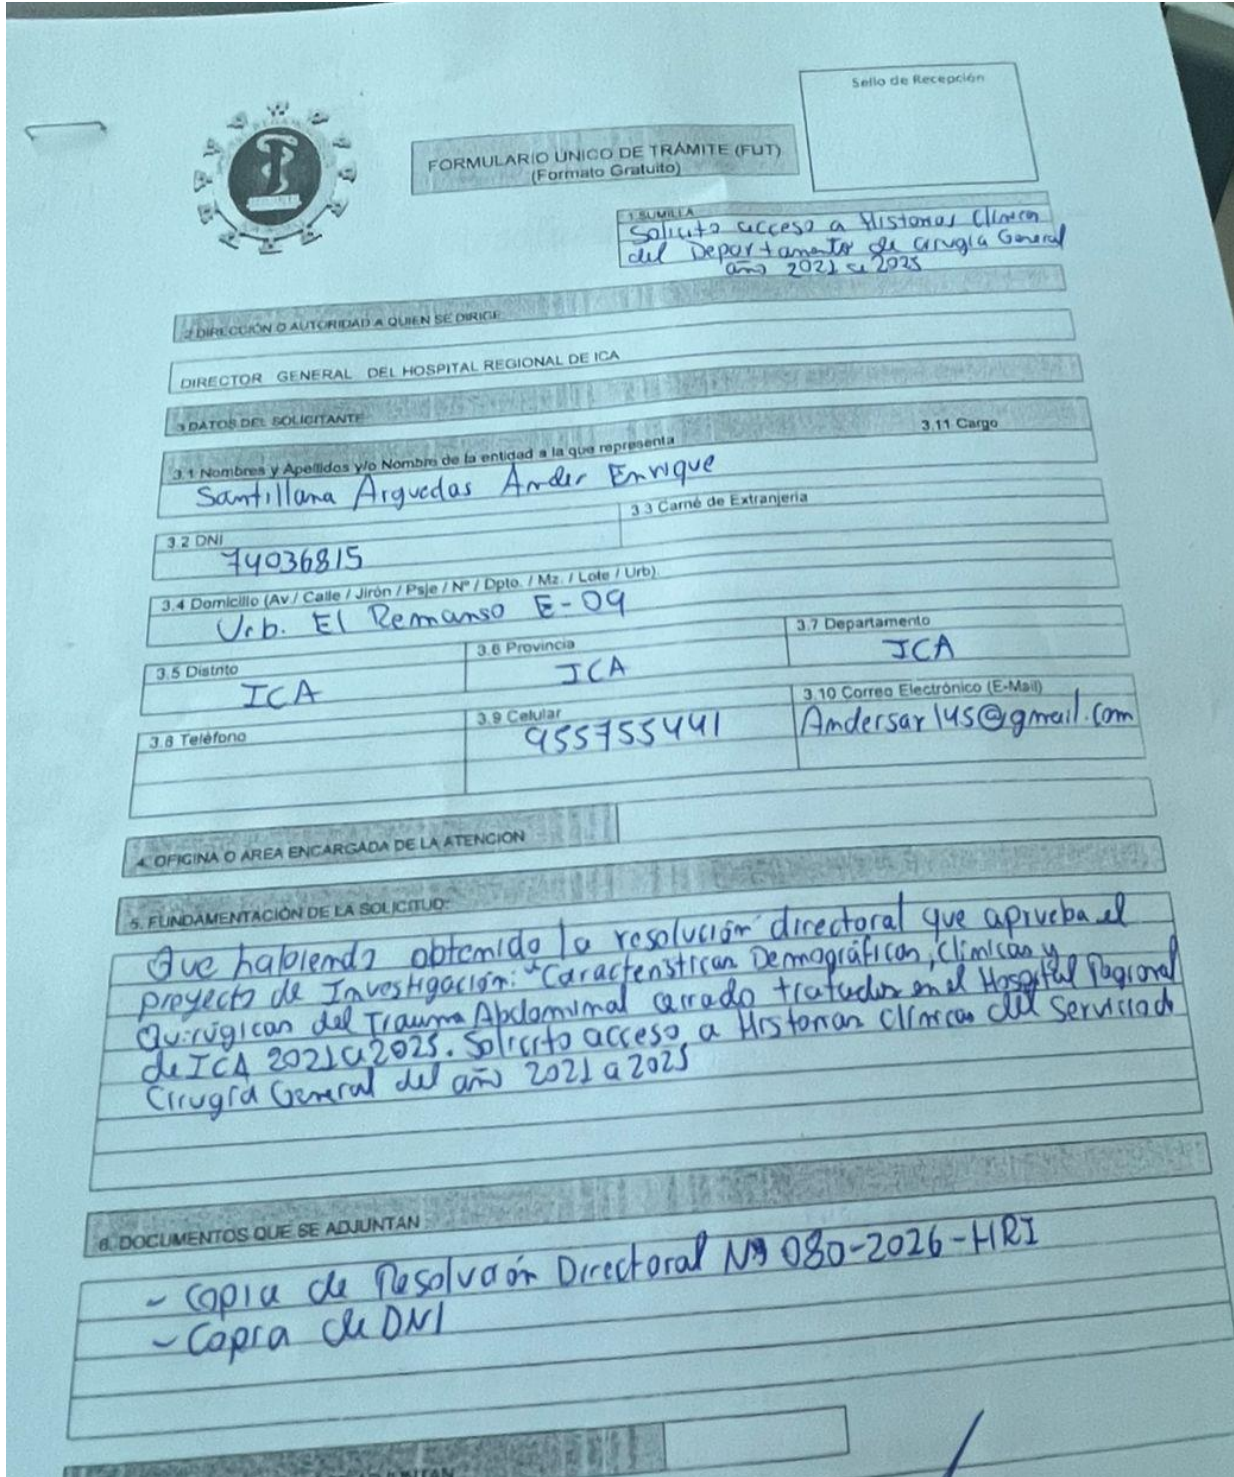 Sello de Recepción
FORMULARIO ÚNICO DE TRÁMITE (FUT)
(Formato Gratuito)
1. SUMILLA
Solicito acceso a Historias Clínicas
del Departamento de cirugía General
año 2021 a 2025
2 DIRECCIÓN O AUTORIDAD A QUIEN SE DIRIGE:
DIRECTOR GENERAL DEL HOSPITAL REGIONAL DE ICA
3 DATOS DEL SOLICITANTE
3.1 Nombres y Apellidos y/o Nombre de la entidad a la que representa
3.11 Cargo
Santillana Arguedas Ander Enrique
3.2 DNI
3.3 Carné de Extranjería
74036815
3.4 Domicilio (Av./ Calle / Jirón / Psje / Nº / Dpto. / Mz. / Lote / Urb)
Urb. El Remanso E-09
3.5 Distrito
3.6 Provincia
3.7 Departamento
ICA
ICA
ICA
3.8 Teléfono
3.9 Celular
3.10 Correo Electrónico (E-Mail)
955755441
Andersar145@gmail.com
4. OFICINA O AREA ENCARGADA DE LA ATENCIÓN
5. FUNDAMENTACIÓN DE LA SOLICITUD:
Que habiendo obtenido la resolución directoral que aprueba el
proyecto de Investigación: "Características Demográficas, Clínicas y
Quirúgicas del Trauma Abdominal cerrado tratados en el Hospital Regional
de ICA 2021 a 2025. Solicito acceso a Historias Clínicas del Servicio de
Cirugía General del año 2021 a 2025
6. DOCUMENTOS QUE SE ADJUNTAN
- copia de Resolución Directoral Nº 080-2026-HRI
- Copia de DNI